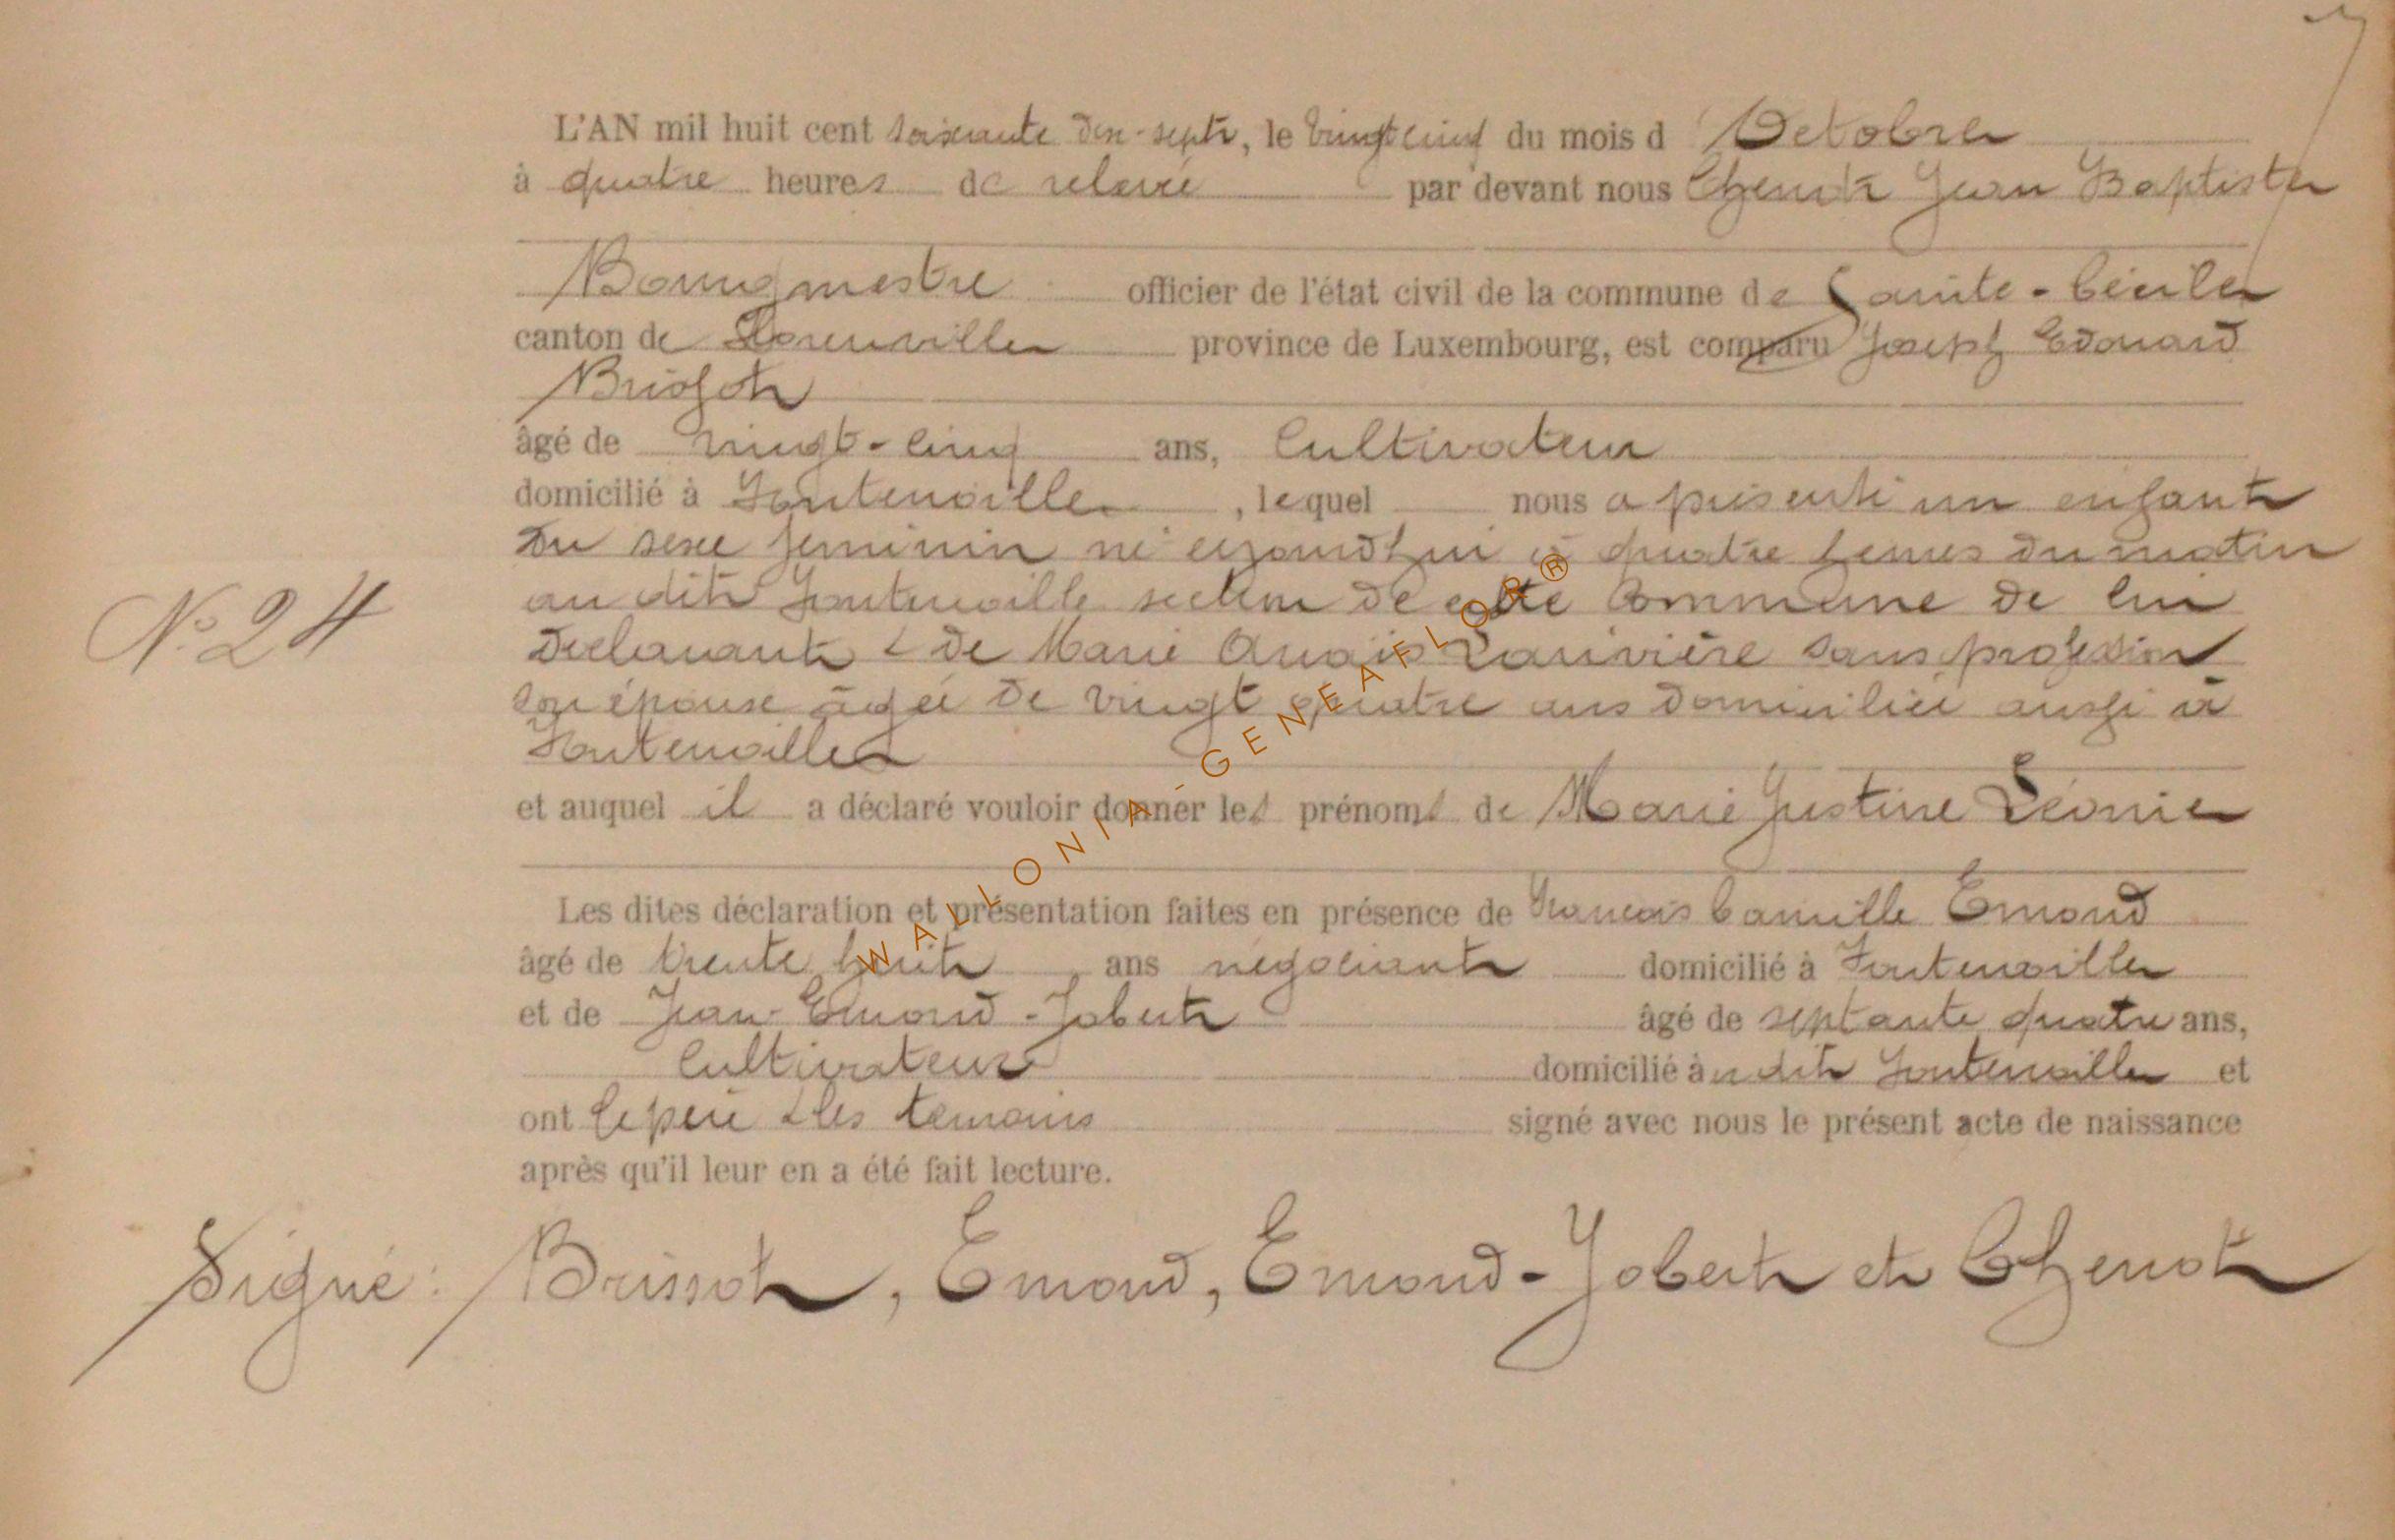 L'AN mil huit cent soixante dix-sept, le vingt cinq du mois d'Octobre
à quatre heures de relevée par devant nous Chenot Jean Baptiste
Bourgmestre officier de l'état civil de la commune de Sainte-Cécile
canton de Florenville province de Luxembourg, est comparu Joseph Edouard
Brissot
âgé de vingt-cinq ans, Cultivateur
domicilié à Fontenoille, lequel nous a présenté un enfant
du sexe féminin né aujourd'hui à quatre heures du matin
au dit Fontenoille section de cette Commune de lui
Déclarant & de Marie Anaïs Larivière sans profession
son épouse âgée de vingt quatre ans domiciliée aussi à
Fontenoille
N° 24
et auquel il a déclaré vouloir donner les prénoms de Marie Justine Léonie
Les dites déclaration et présentation faites en présence de François Camille Emond
âgé de trente huit ans négociant domicilié à Fontenoille
et de Jean Emond-Jobert âgé de septante quatre ans,
Cultivateur domicilié au dit Fontenoille et
ont le père & les témoins signé avec nous le présent acte de naissance
après qu'il leur en a été fait lecture.
Signé : Brissot, Emond, Emond-Jobert et Chenot
WALLONIA-GENEAFLOR®